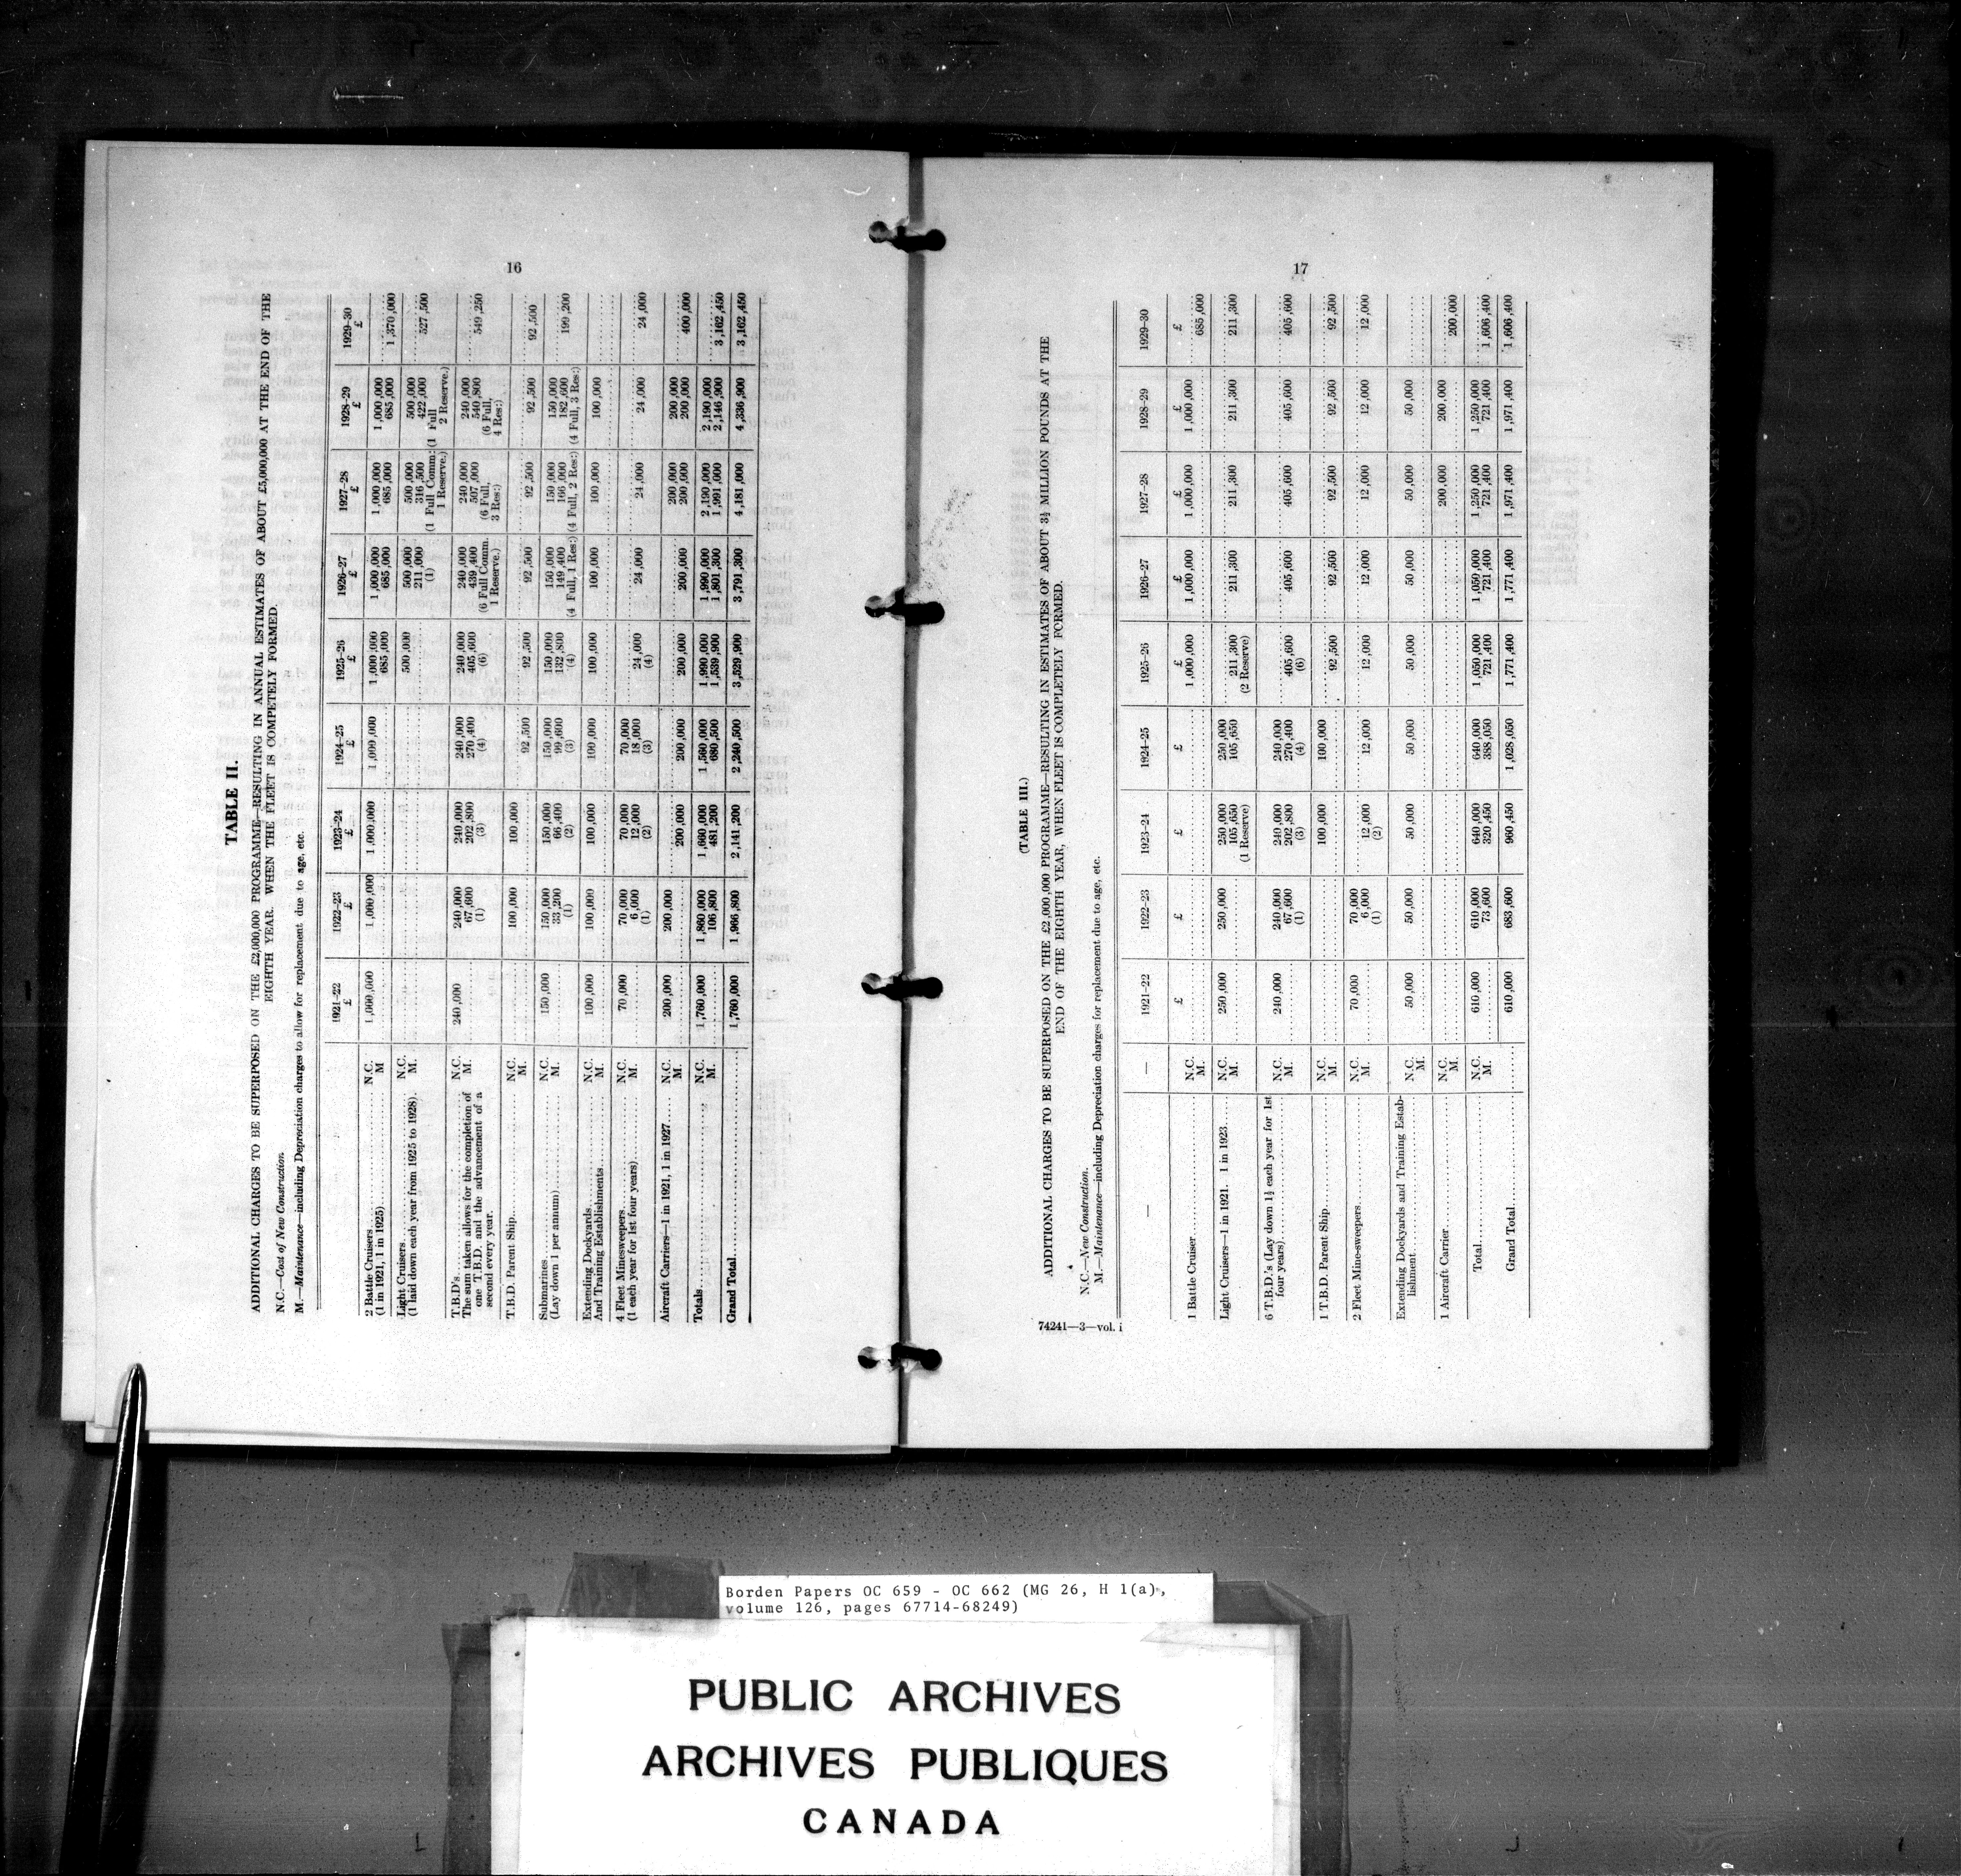 16
TABLE II.
ADDITIONAL CHARGES TO BE SUPERPOSED ON THE £2,000,000 PROGRAMME—RESULTING IN ANNUAL ESTIMATES OF ABOUT £5,000,000 AT THE END OF THE
EIGHTH YEAR, WHEN THE FLEET IS COMPETELY FORMED.
N.C.—Cost of New Construction.
M.—Maintenance—including Depreciation charges to allow for replacement due to age, etc.
1921-22 1922-23 1923-24 1924-25 1925-26 1926-27 1927-28 1928-29 1929-30
£ £ £ £ £ £ £ £ £
2 Battle Cruisers N.C. 1,000,000 1,000,000 1,000,000 1,000,000 1,000,000 1,000,000 1,000,000 1,000,000
(1 in 1921, 1 in 1925) M 685,000 685,000 685,000 685,000 1,370,000
Light Cruisers N.C. 500,000 500,000 500,000 500,000
(1 laid down each year from 1925 to 1928). M. 211,000 316,500 422,000 527,500
(1) (1 Full Comm: (1 Full
1 Reserve.) 2 Reserve.)
T.B.D's N.C. 240,000 240,000 240,000 240,000 240,000 240,000 240,000 240,000
The sum taken allows for the completion of M. 67,600 202,800 270,400 405,600 439,400 507,000 540,800 549,250
one T.B.D. and the advancement of a (1) (3) (4) (6) (6 Full Comm. (6 Full, (6 Full,
second every year. 1 Reserve.) 3 Res:) 4 Res:)
T.B.D. Parent Ship N.C. 100,000 100,000
M. 92,500 92,500 92,500 92,500 92,500 92,500
Submarines N.C. 150,000 150,000 150,000 150,000 150,000 150,000 150,000 150,000
(Lay down 1 per annum) M. 33,200 66,400 99,600 132,800 149,400 166,000 182,600 199,200
(1) (2) (3) (4) (4 Full, 1 Res:) (4 Full, 2 Res:) (4 Full, 3 Res:)
Extending Dockyards N.C. 100,000 100,000 100,000 100,000 100,000 100,000 100,000 100,000
And Training Establishments M.
4 Fleet Minesweepers N.C. 70,000 70,000 70,000 70,000
(1 each year for 1st four years) M. 6,000 12,000 18,000 24,000 24,000 24,000 24,000 24,000
(1) (2) (3) (4)
Aircraft Carriers—1 in 1921, 1 in 1927 N.C. 200,000 200,000 200,000 200,000
M. 200,000 200,000 200,000 200,000 200,000 200,000 400,000
Totals N.C. 1,760,000 1,860,000 1,660,000 1,560,000 1,990,000 1,990,000 2,190,000 2,190,000
M. 106,800 481,200 680,500 1,539,900 1,801,300 1,991,000 2,146,900 3,162,450
Grand Total 1,760,000 1,966,800 2,141,200 2,240,500 3,529,900 3,791,300 4,181,000 4,336,900 3,162,450
17
(TABLE III.)
ADDITIONAL CHARGES TO BE SUPERPOSED ON THE £2,000,000 PROGRAMME—RESULTING IN ESTIMATES OF ABOUT 3½ MILLION POUNDS AT THE
END OF THE EIGHTH YEAR, WHEN FLEET IS COMPLETELY FORMED.
N.C.—New Construction.
M.—Maintenance—including Depreciation charges for replacement due to age, etc.
— — 1921-22 1922-23 1923-24 1924-25 1925-26 1926-27 1927-28 1928-29 1929-30
£ £ £ £ £ £ £ £ £
1 Battle Cruiser N.C. 1,000,000 1,000,000 1,000,000 1,000,000
M. 685,000
Light Cruisers—1 in 1921. 1 in 1923 N.C. 250,000 250,000 250,000 250,000
M. 105,650 105,650 211,300 211,300 211,300 211,300 211,300
(1 Reserve) (2 Reserve)
6 T.B.D.'s (Lay down 1½ each year for 1st N.C. 240,000 240,000 240,000 240,000
four years) M. 67,600 202,800 270,400 405,600 405,600 405,600 405,600 405,600
(1) (3) (4) (6)
1 T.B.D. Parent Ship N.C. 100,000 100,000
M. 92,500 92,500 92,500 92,500 92,500
2 Fleet Mine-sweepers N.C. 70,000 70,000
M. 6,000 12,000 12,000 12,000 12,000 12,000 12,000 12,000
(1) (2)
Extending Dockyards and Training Estab- N.C. 50,000 50,000 50,000 50,000 50,000 50,000 50,000 50,000
lishment M.
1 Aircraft Carrier N.C. 200,000 200,000
M. 200,000
Total N.C. 610,000 610,000 640,000 640,000 1,050,000 1,050,000 1,250,000 1,250,000
M. 73,600 320,450 388,050 721,400 721,400 721,400 721,400 1,606,400
Grand Total 610,000 683,600 960,450 1,028,050 1,771,400 1,771,400 1,971,400 1,971,400 1,606,400
74241—3—vol. i
Borden Papers OC 659 - OC 662 (MG 26, H 1(a),
volume 126, pages 67714-68249)
PUBLIC ARCHIVES
ARCHIVES PUBLIQUES
CANADA